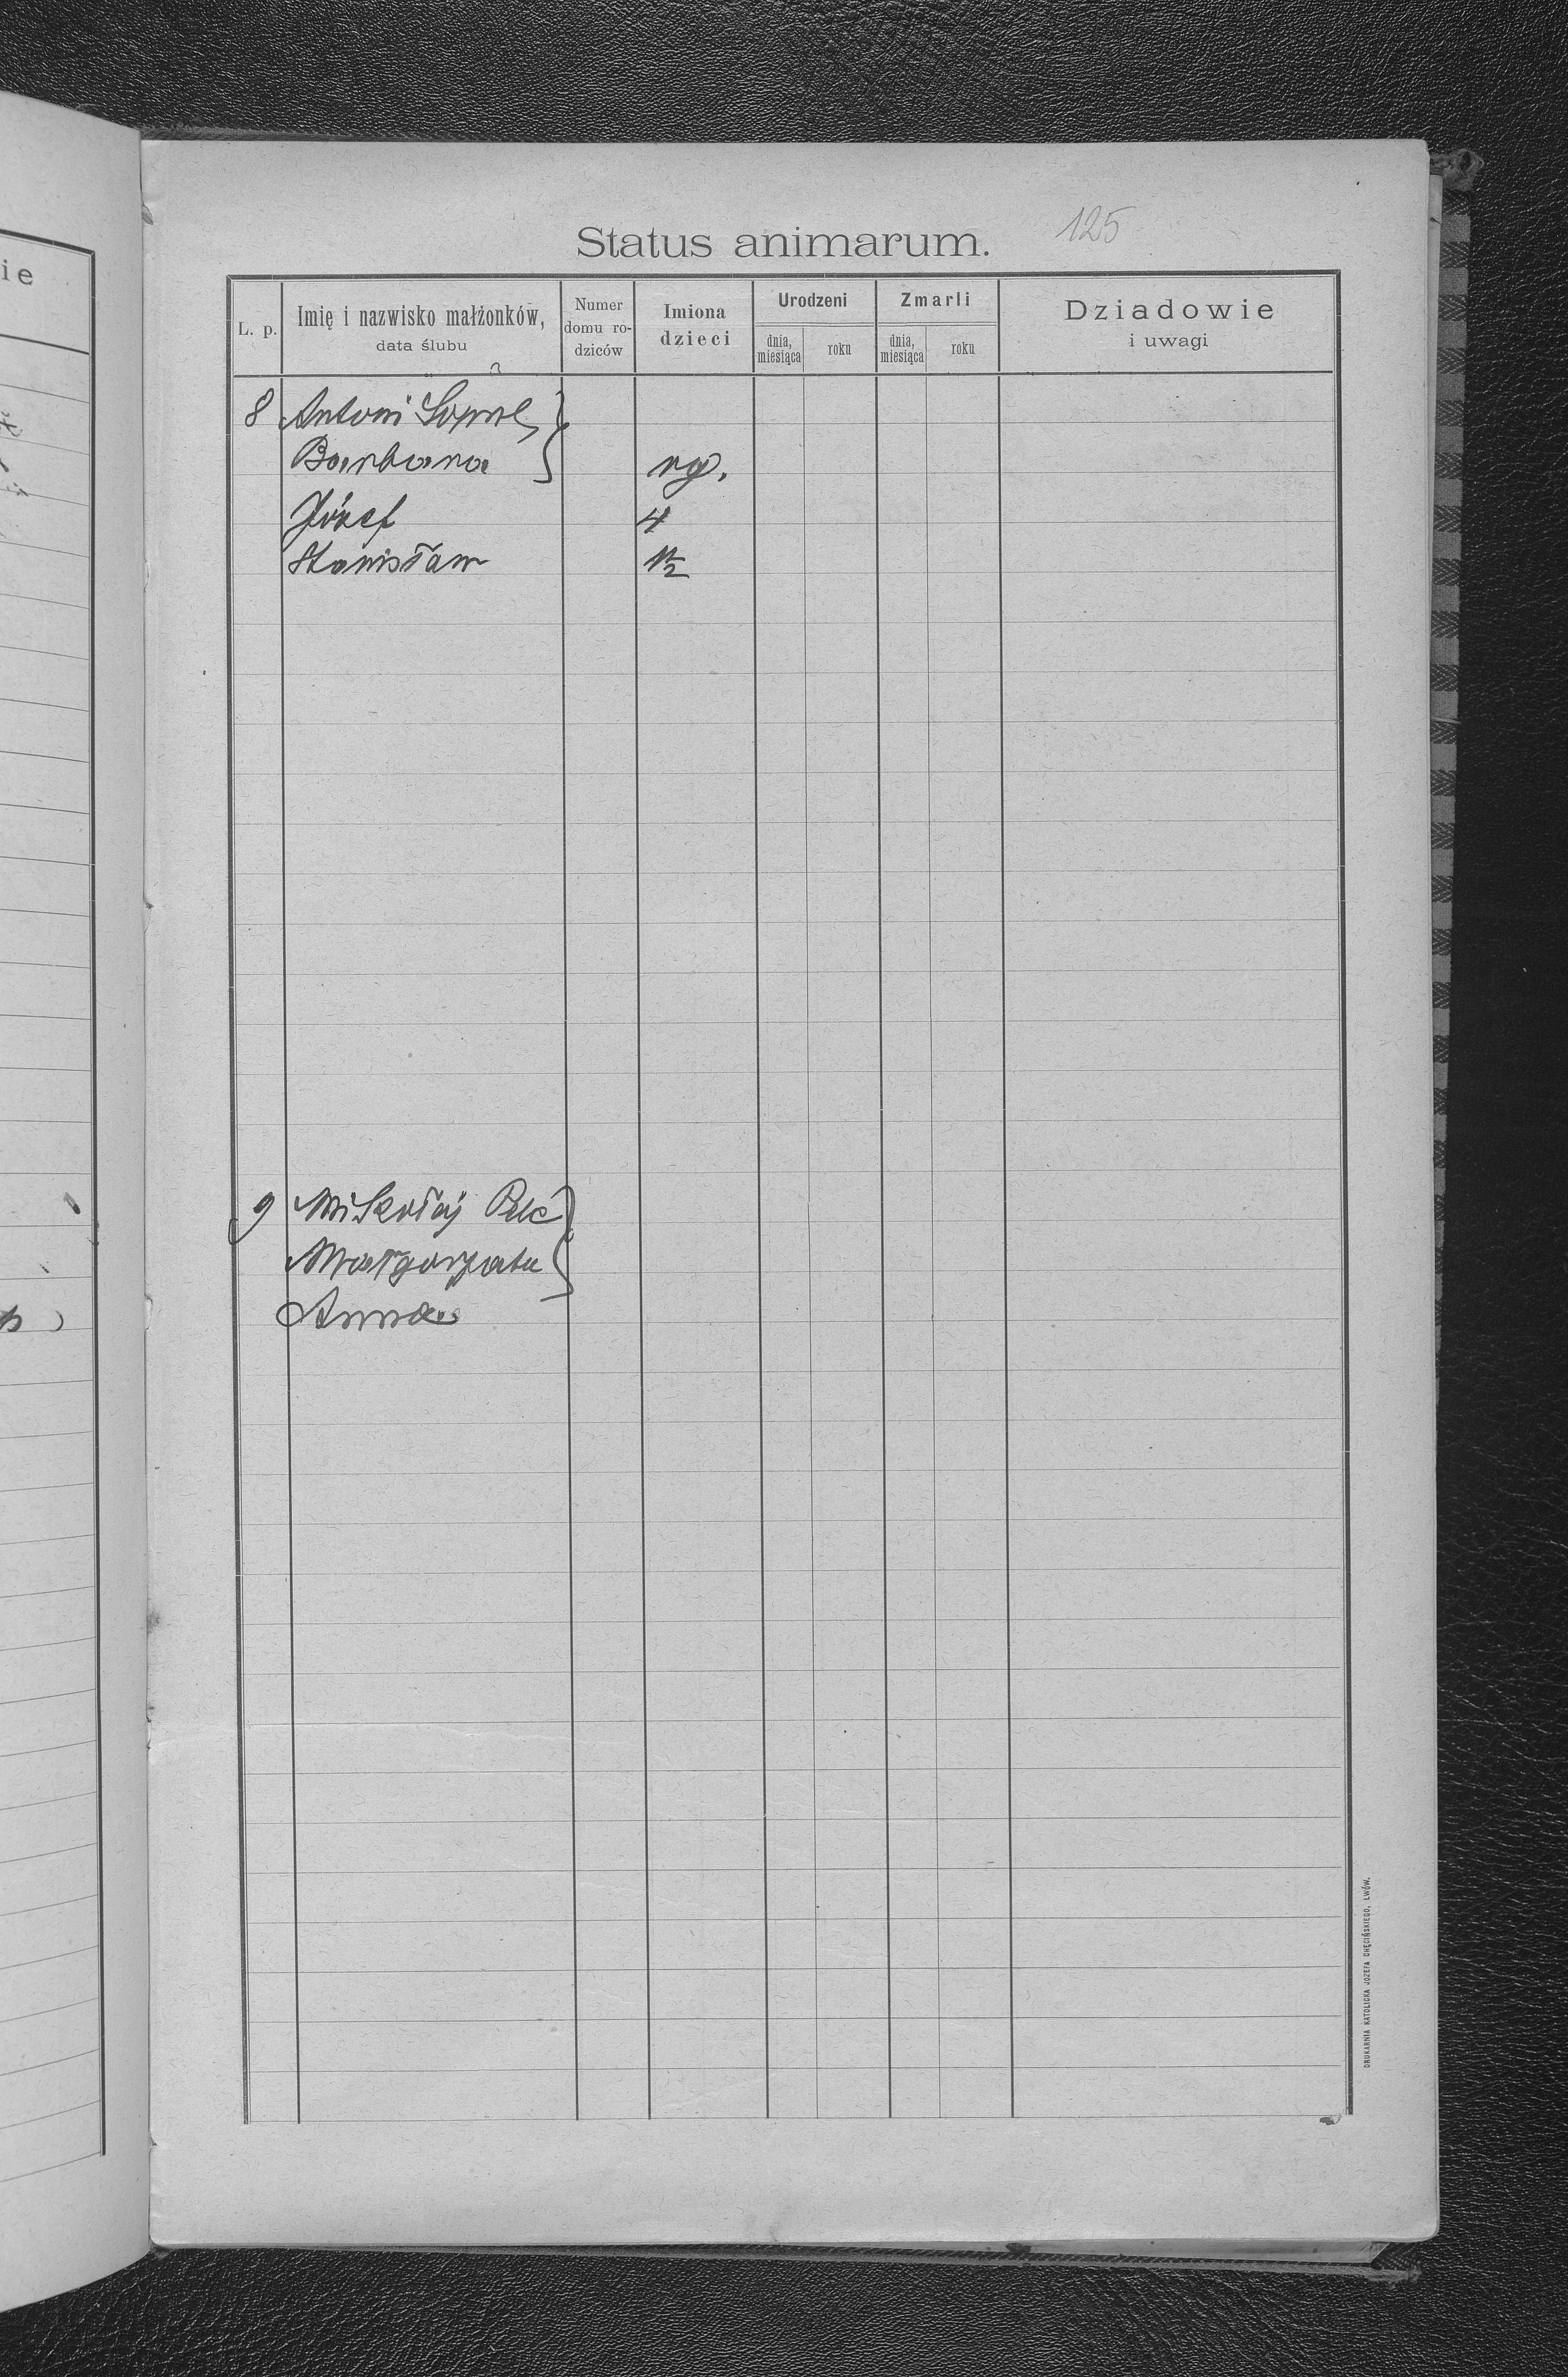 ie
Status animarum. 125
L. p. Imię i nazwisko małżonków, data ślubu Numer domu rodziców Imiona dzieci Urodzeni dnia, miesiąca roku Zmarli dnia, miesiąca roku Dziadowie i uwagi
8 Antoni
Barbara
Józef 4
Stanisław ½
9 Mikołaj Pelc
Małgorzata
Anna
DRUKARNIA KATOLICKA JÓZEFA CHĘCIŃSKIEGO, LWÓW.